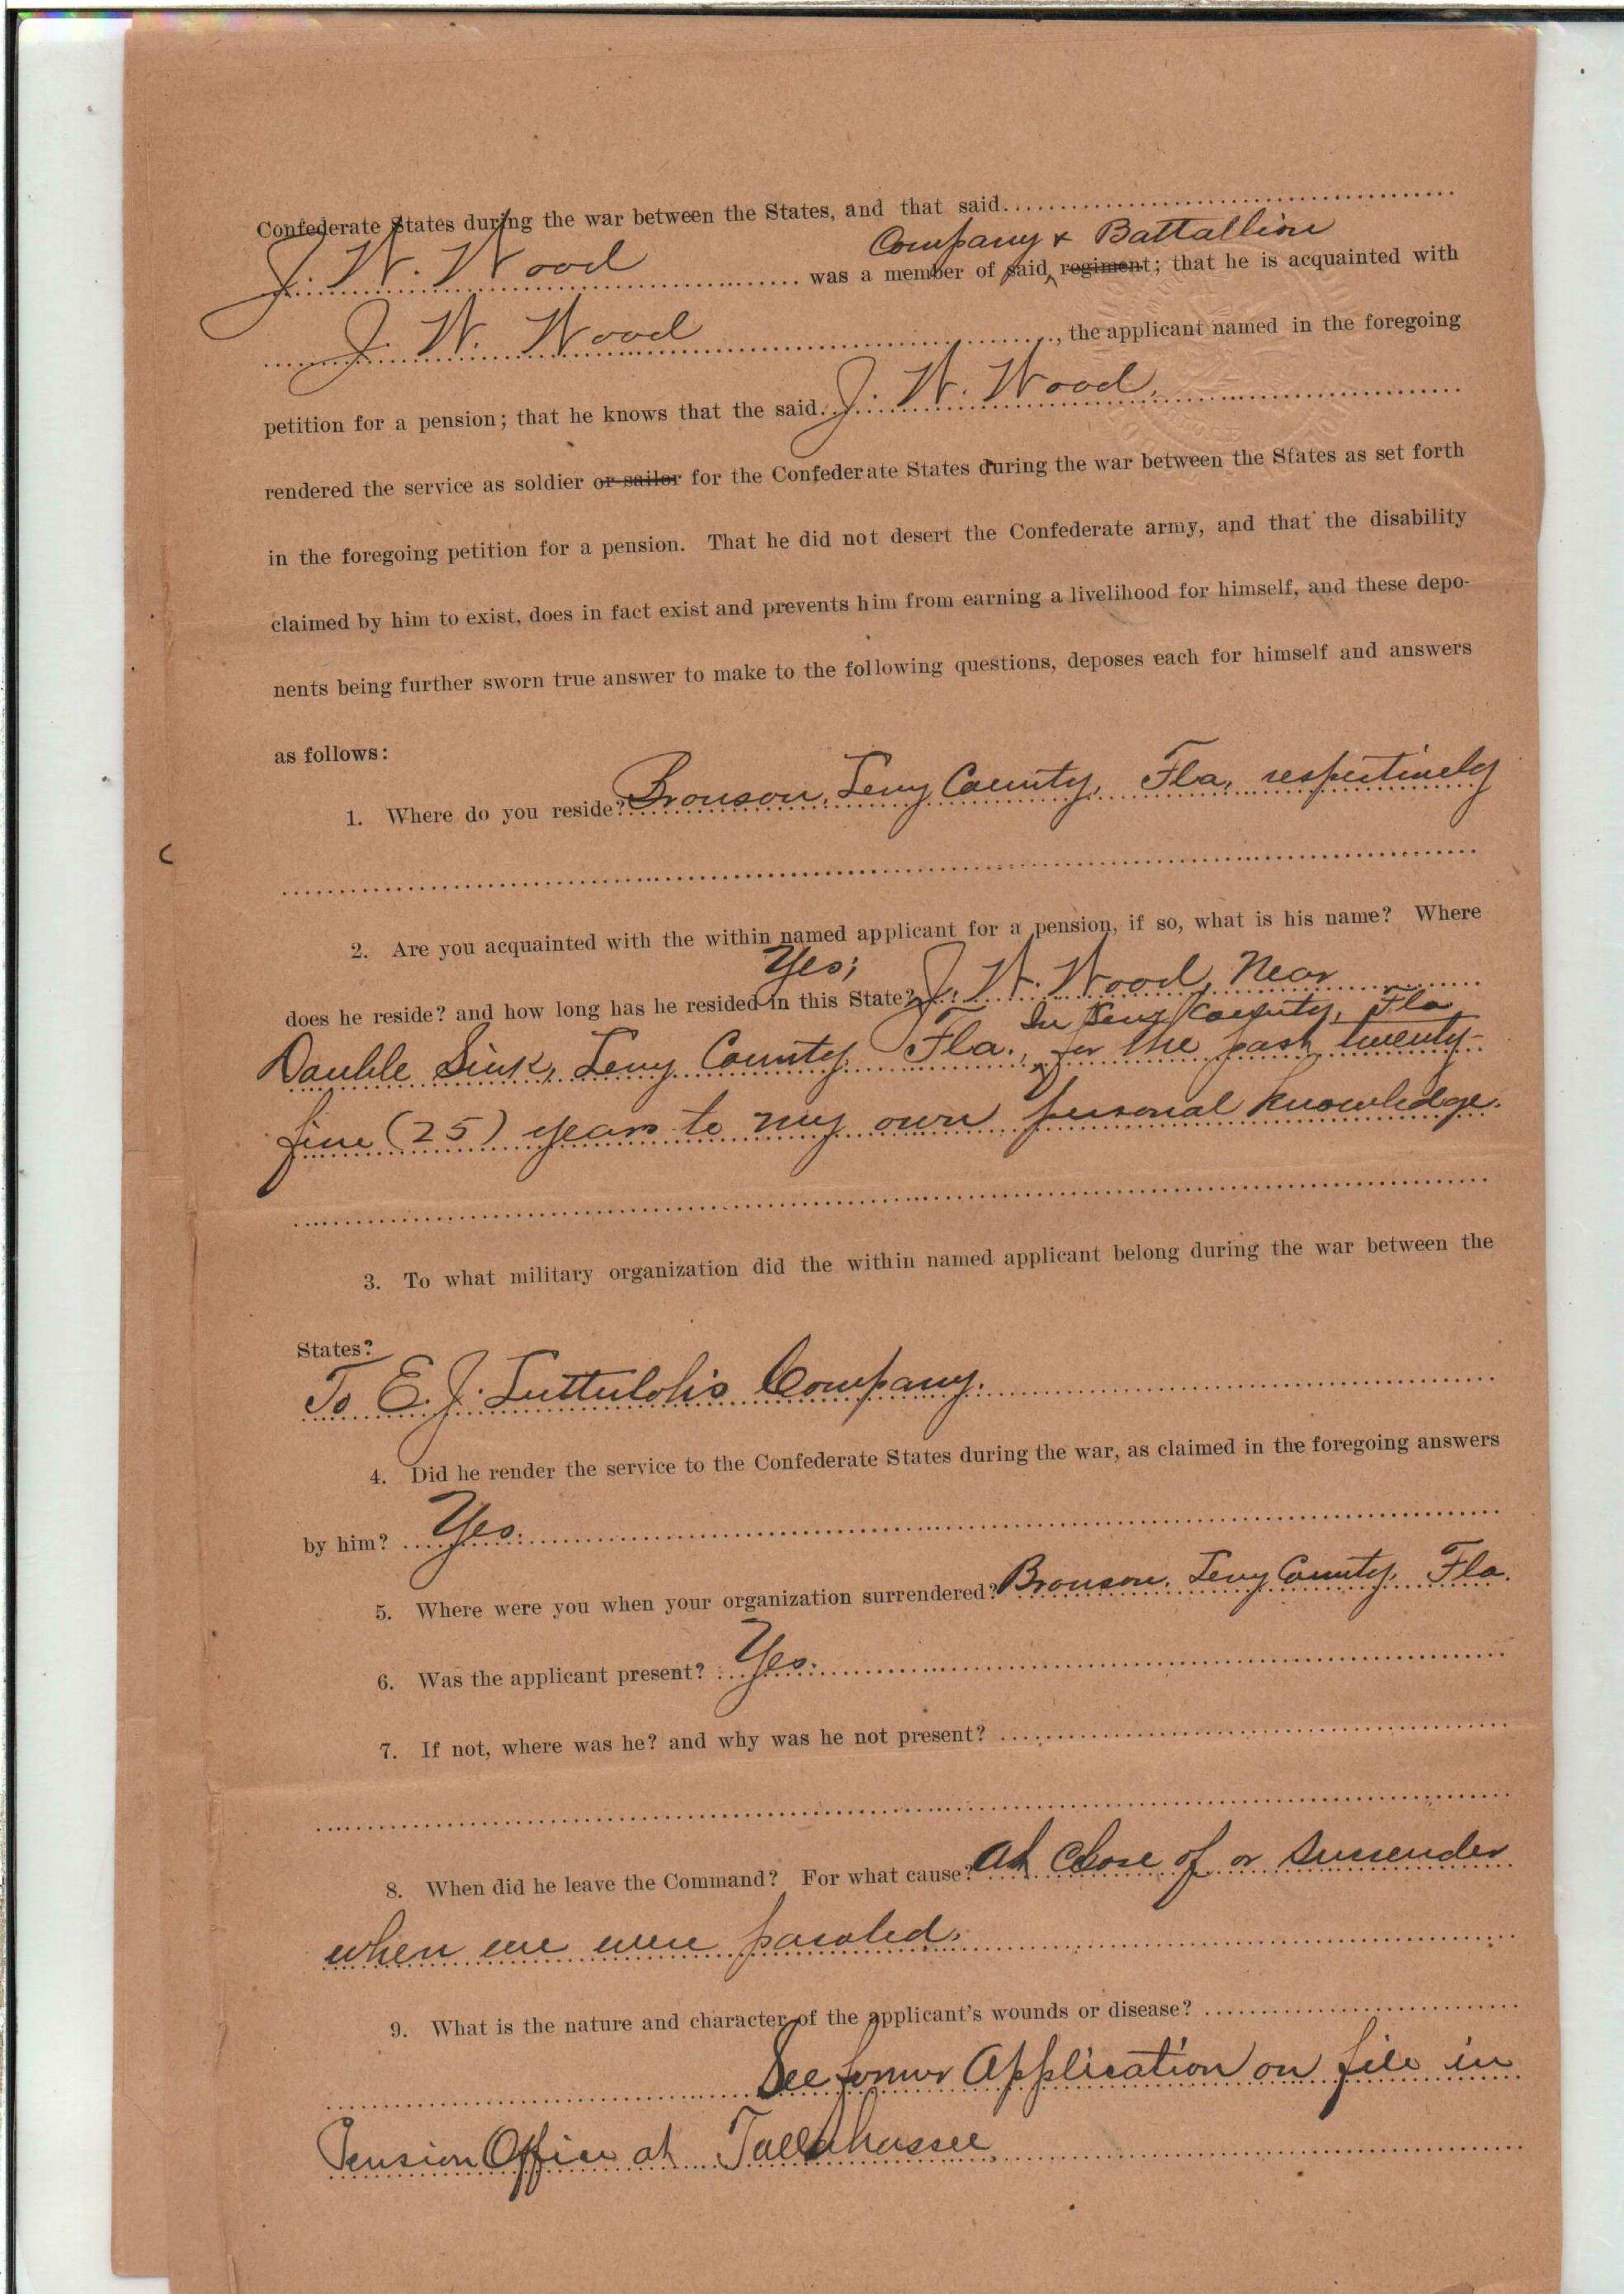 Confederate States during the war between the States, and that said
Company & Battallion
J. W. Wood was a member of said regiment; that he is acquainted with
J. W. Wood, the applicant named in the foregoing
petition for a pension; that he knows that the said J. W. Wood,
rendered the service as soldier or sailor for the Confederate States during the war between the States as set forth
in the foregoing petition for a pension. That he did not desert the Confederate army, and that the disability
claimed by him to exist, does in fact exist and prevents him from earning a livelihood for himself, and these depo-
nents being further sworn true answer to make to the following questions, deposes each for himself and answers
as follows:
1. Where do you reside? Bronson, Levy County, Fla, respectively
2. Are you acquainted with the within named applicant for a pension, if so, what is his name? Where
Yes;
does he reside? and how long has he resided in this State? J. W. Wood, Near
In Levy County, Fla
Double Sink, Levy County Fla., for the past twenty-
five (25) years to my own personal knowledge.
3. To what military organization did the within named applicant belong during the war between the
States?
To E. J. Company.
4. Did he render the service to the Confederate States during the war, as claimed in the foregoing answers
by him? Yes.
5. Where were you when your organization surrendered? Bronson, Levy County, Fla.
6. Was the applicant present? Yes.
7. If not, where was he? and why was he not present?
8. When did he leave the Command? For what cause? At Close of or surrender
when we were paroled.
9. What is the nature and character of the applicant's wounds or disease?
See former Application on file in
Pension Office at Tallahassee